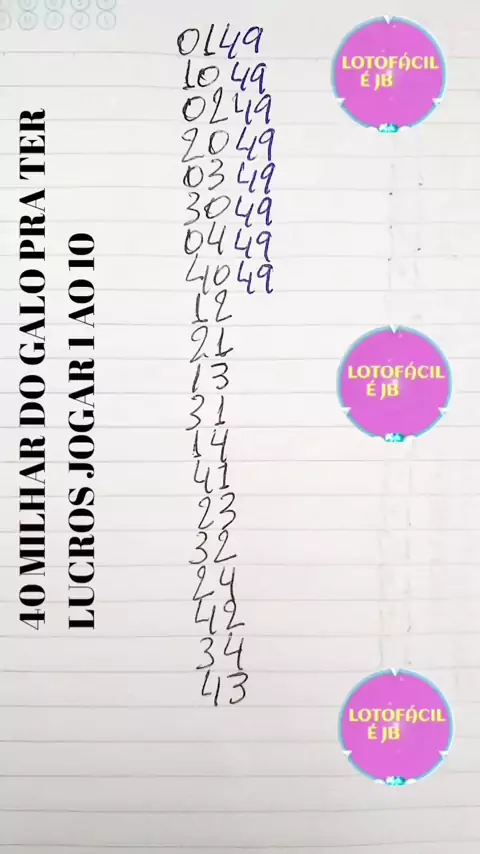 40 MILHAR DO GALO PRA TER
LUCROS JOGAR 1 AO 10
0149
1049
0249
2049
0349
3049
0449
4049
12
21
13
31
14
41
23
32
24
42
34
43
LOTOFÁCIL
É JB
LOTOFÁCIL
É JB
LOTOFÁCIL
É JB